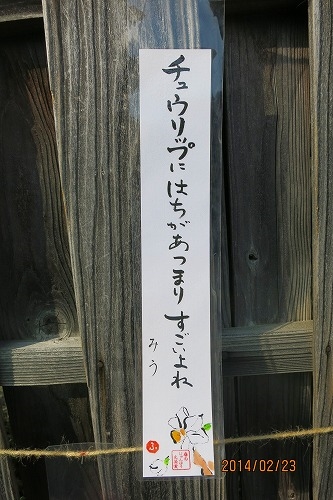 チュウリップに はちがあつまり すごいよね
みう
ふ
2014/02/23